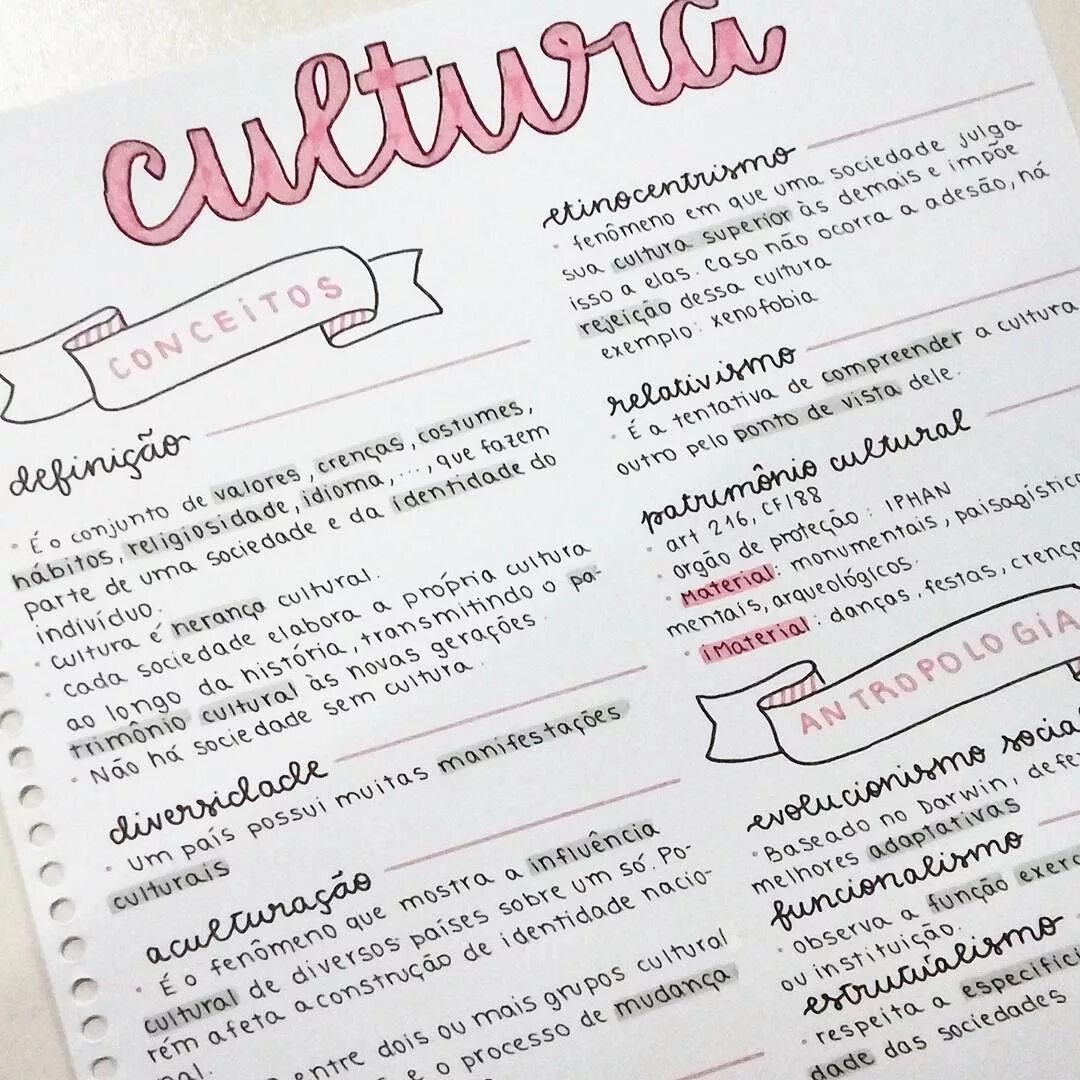 cultura
CONCEITOS
definição
• É o conjunto de valores, crenças, costumes,
hábitos, religiosidade, idioma, ..., que fazem
parte de uma sociedade e da identidade do
indivíduo.
• cultura é herança cultural.
• cada sociedade elabora a própria cultura
ao longo da história, transmitindo o pa-
trimônio cultural às novas gerações.
• Não há sociedade sem cultura.
diversidade
• Um país possui muitas manifestações
culturais
aculturação
• É o fenômeno que mostra a influência
cultural de diversos países sobre um só. Po-
rém afeta a construção de identidade nacio-
nal.
entre dois ou mais grupos cultural
e o processo de mudança
etinocentrismo
• fenômeno em que uma sociedade julga
sua cultura superior às demais e impõe
isso a elas. caso não ocorra a adesão, há
rejeição dessa cultura
exemplo: xenofobia
relativismo
• É a tentativa de compreender a cultura
outro pelo ponto de vista dele.
patrimônio cultural
• art 216, CF/88
• orgão de proteção: IPHAN
• Material: monumentais, paisagístico
mentais, arqueológicos.
• iMaterial: danças, festas, crença
ANTROPOLOGIA
evolucionismo socia
• Baseado no Darwin, defe
melhores adaptativas
funcionalismo
• observa a função exerc
ou instituição.
estrutualismo
• respeita a especifici
dade das sociedades